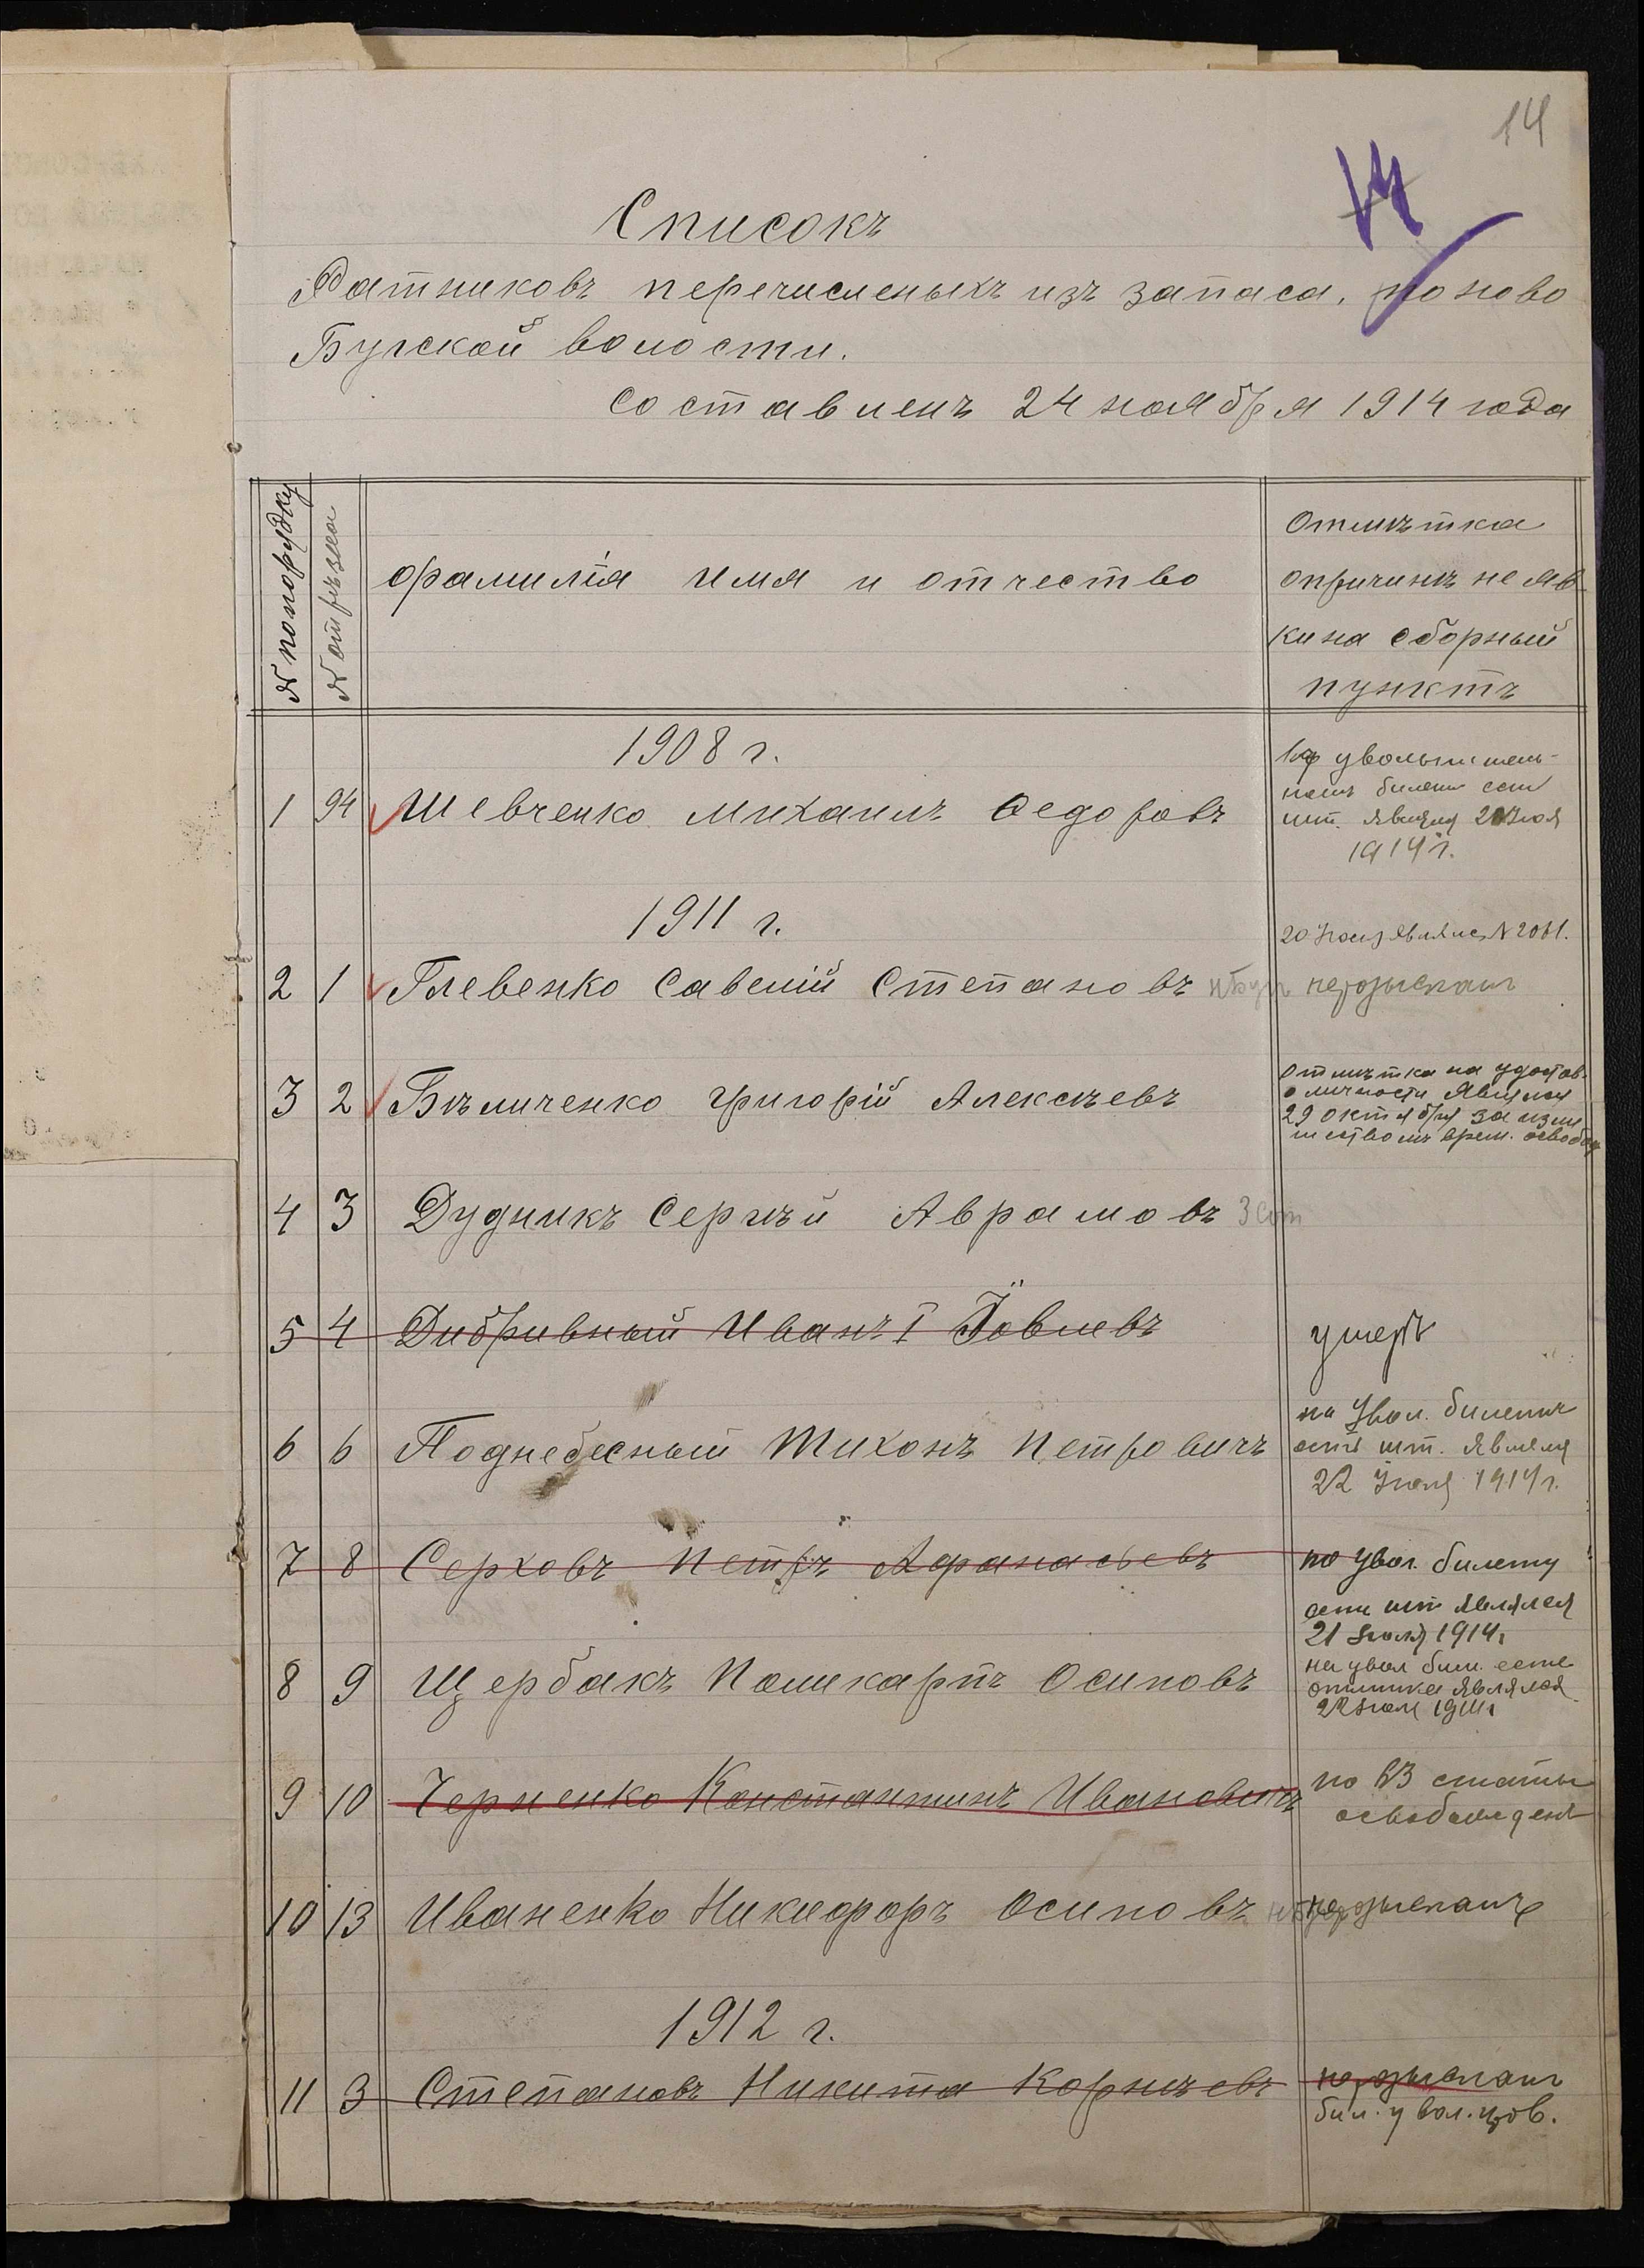 14
14
Списокъ
Ратниковъ перечисленыхъ изъ запаса, по ново
Бугской волости.
составленъ 24 ноября 1914 года
№ по порудку
№ отрѣзка
фамилія имя и отчество
Отмѣтка
опричинѣ не яв
ки на сборный
пунктъ
1908 г.
1 94 Шевченко Михаилъ Ѳедоровъ
увольнитель-
номъ билетѣ есть
шт. явился 20 Іюля
1914 г.
1911 г.
20 Іюля явился № 2061.
2 1 Глевенко Савелій Степановъ неразысканъ
3 2 Бѣличенко григорій Алексѣевъ
Отмѣтка на удостов.
о личности явился
29 октября за изли
шествомъ врем. освобож
4 3 Дудникъ Сергѣй Аврамовъ
5 4 Дибривный Иванъ I Іовлевъ умеръ
на Увол. билетѣ
6 6 Поднебесный Тихонъ Петровичъ есть шт. явился
22 Іюля 1914 г.
7 8 Серховъ Петръ Афанасьевъ по увол. билету
есть шт. являлся
21 Іюля 1914 г
8 9 Щербакъ Поликарпъ Осиповъ
на увол бил. есть
отмѣтка являлся
22 Іюля 1914 г
9 10 Черненко Константинъ Ивановичъ по 63 статьи
освобожденъ
10 13 Иваненко Никифоръ Осиповъ неразысканъ
1912 г.
11 3 Степановъ Никита Корнѣевъ неразысканъ
бил. у вол.